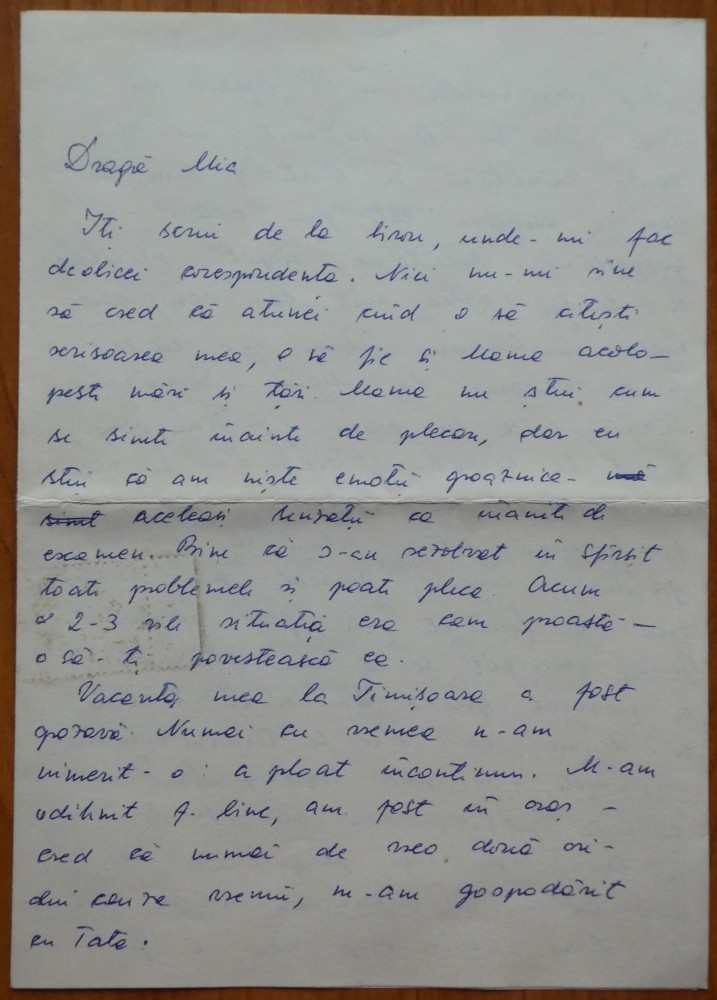 Dragă Mia
Iți scriu de la birou, unde-mi fac
deobicei corespondenta. Nici nu-mi vine
să cred că atunci cînd o să citești
scrisoarea mea, o să fie și Mama acolo-
peste mări și țări. Mama nu știu cum
se simte înainte de plecare, dar eu
știu că am niște emoții groaznice- mă
simt aceleași senzații ca înainte de
examen. Bine că s-au rezolvat în sfîrșit
toate problemele și poate pleca. Acum
2-3 zile situația era cam proastă -
o să-ți povestească ea.
Vacanța mea la Timișoara a fost
grozavă. Numai cu vremea n-am
nimerit-o: a ploat încontinuu. M-am
odihnit f. bine, am fost în oraș -
cred că numai de vreo două ori-
din cauza vremii, m-am gospodărit
cu Tata.